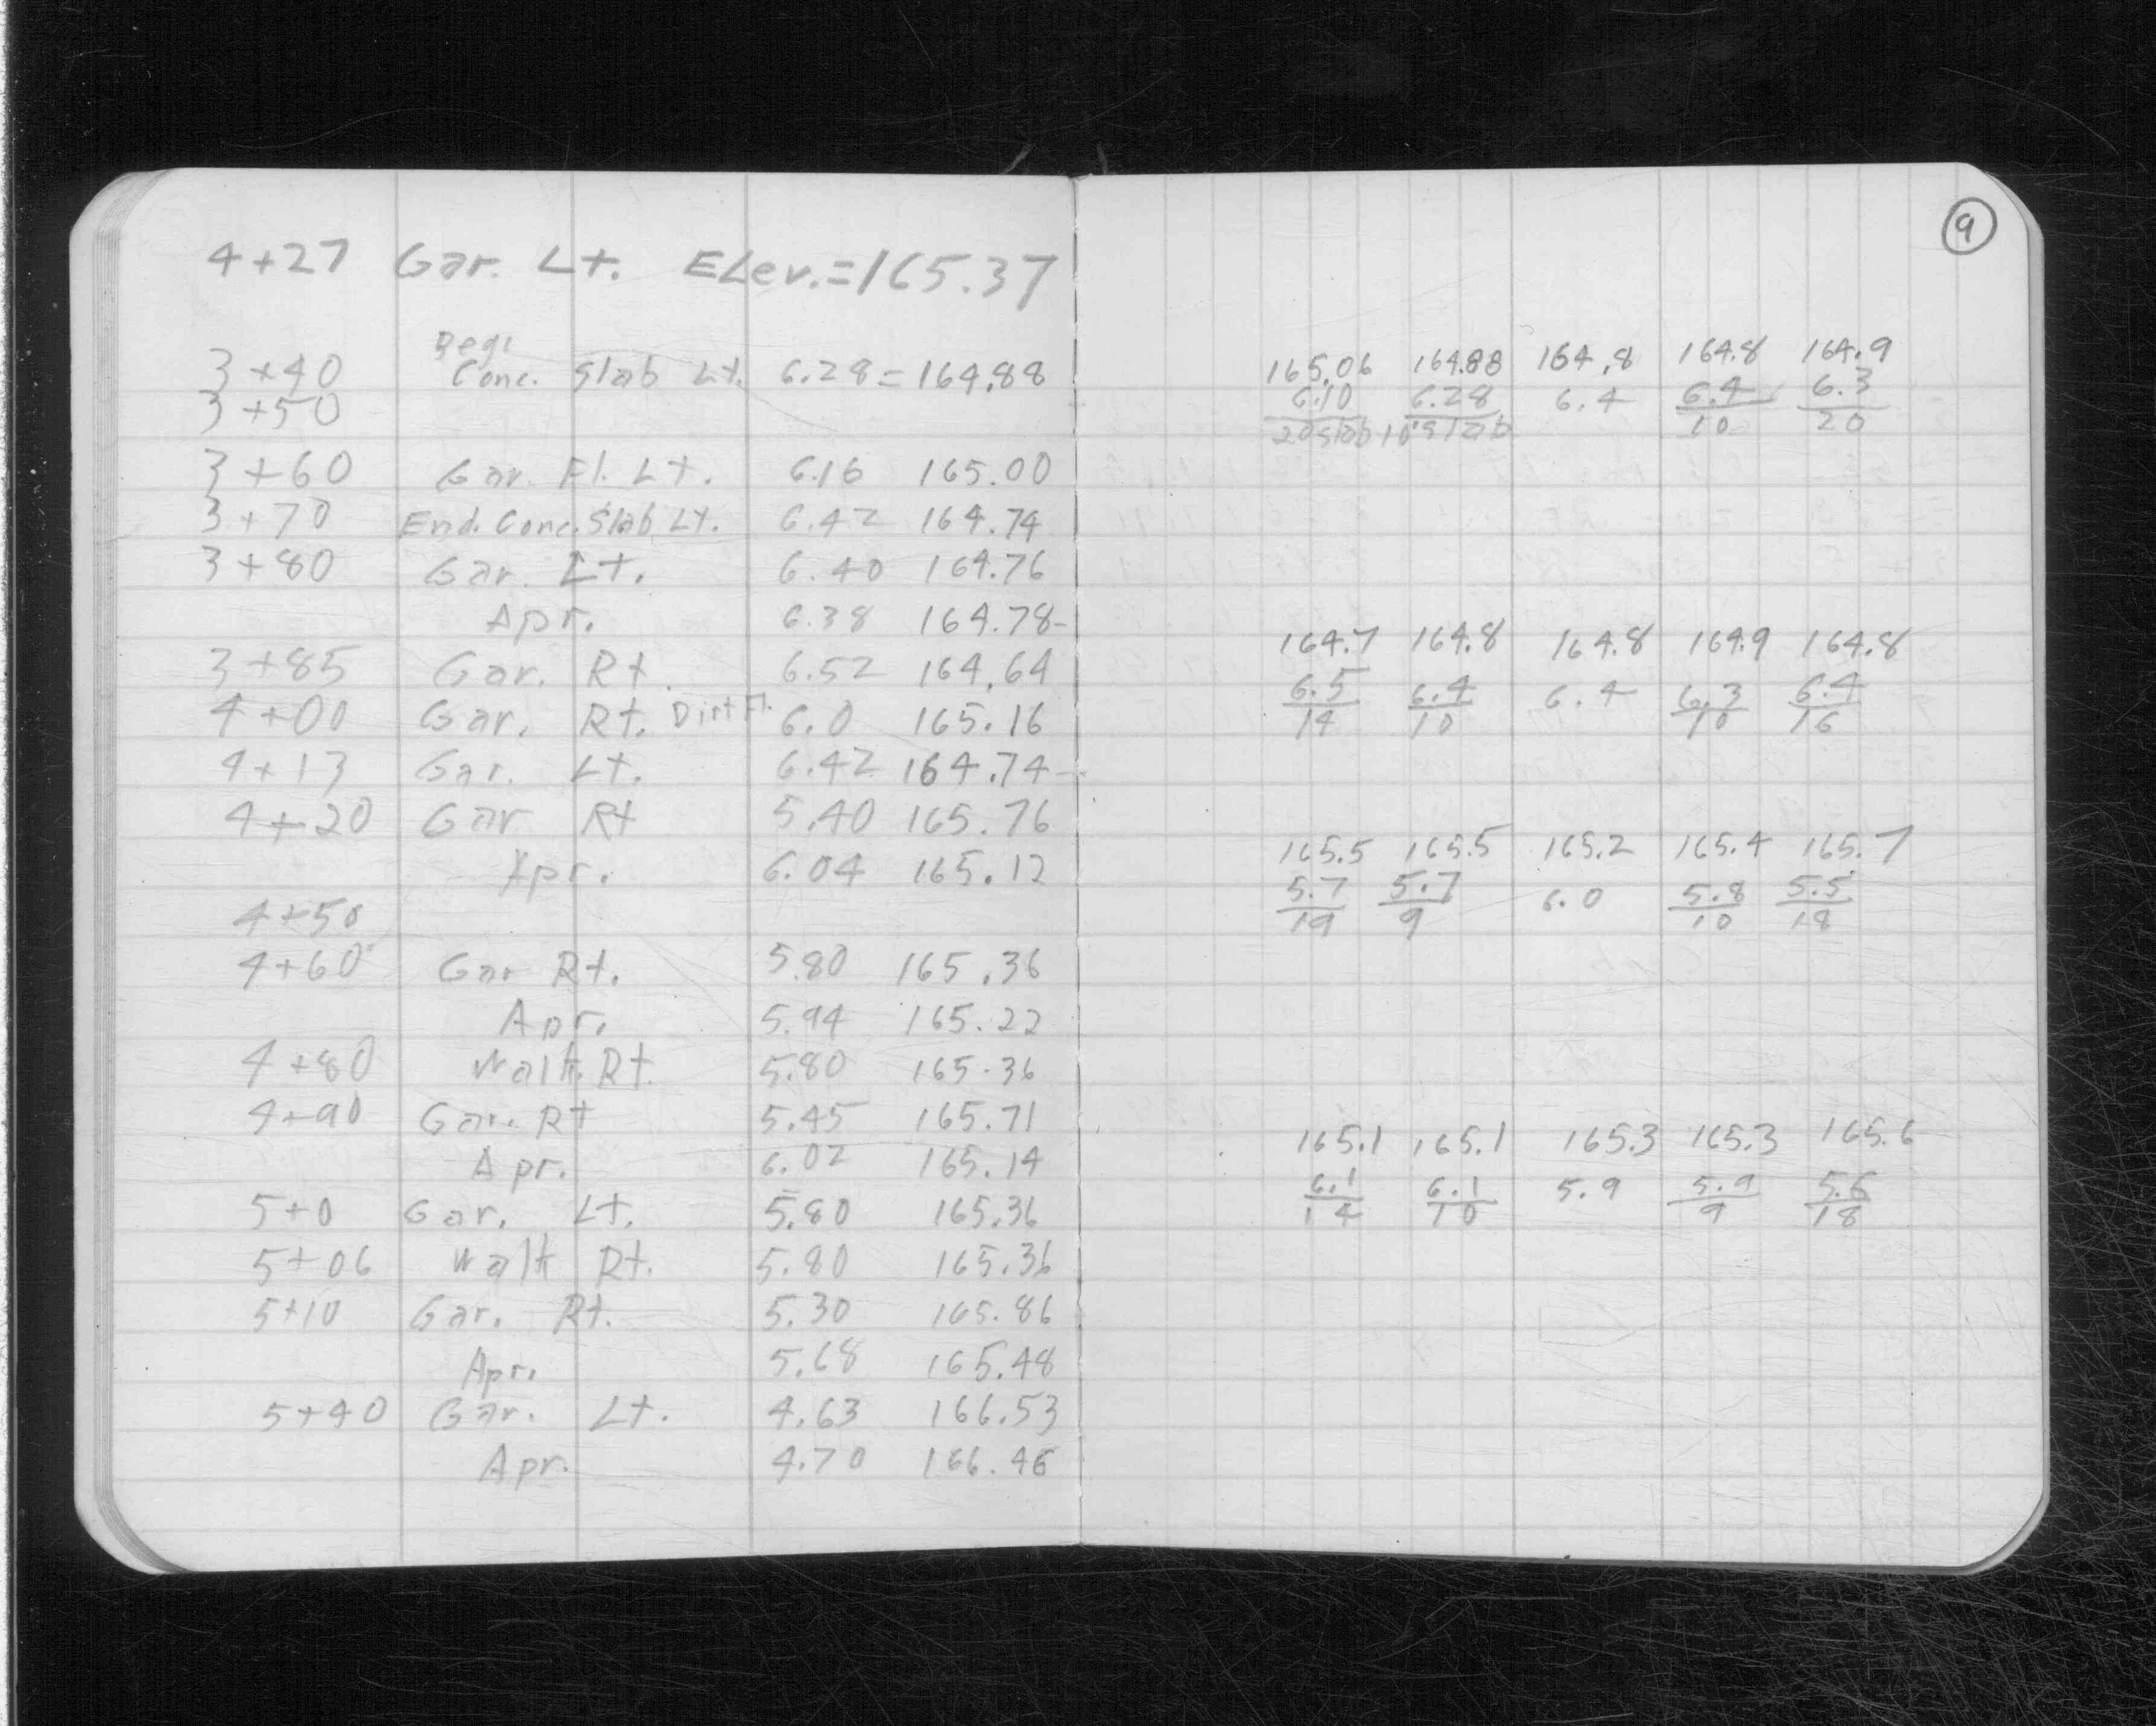 4+27 Gar. Lt. ELev.=165.37
Beg.
3+40 Conc. Slab Lt. 6.28 = 164.88
3+50
3+60 Gar. Fl. Lt. 6.16 165.00
3+70 End. Conc. Slab Lt. 6.42 164.74
3+80 Gar. Lt. 6.40 164.76
Apr. 6.38 164.78-
3+85 Gar. Rt. 6.52 164.64
4+00 Gar. Rt. Dirt Fl. 6.0 165.16
4+13 Gar. Lt. 6.42 164.74-
4+20 Gar Rt 5.40 165.76
Apr. 6.04 165.12
4+50
4+60 Gar Rt. 5.80 165.36
Apr. 5.94 165.22
4+80 Walk Rt. 5.80 165.36
4+90 Gar. Rt 5.45 165.71
Apr. 6.02 165.14
5+0 Gar. Lt. 5.80 165.36
5+06 Walk Rt. 5.80 165.36
5+10 Gar. Rt. 5.30 165.86
Apr. 5.68 165.48
5+40 Gar. Lt. 4.63 166.53
Apr. 4.70 166.46
9
165.06 164.88 164.8 164.8 164.9
6.10 6.28 6.4 6.4 6.3
20 slab 10' slab 10 20
164.7 164.8 164.8 164.9 164.8
6.5 6.4 6.4 6.3 6.4
14 10 10 16
165.5 165.5 165.2 165.4 165.7
5.7 5.7 6.0 5.8 5.5
19 9 10 18
165.1 165.1 165.3 165.3 165.6
6.1 6.1 5.9 5.9 5.6
14 10 9 18